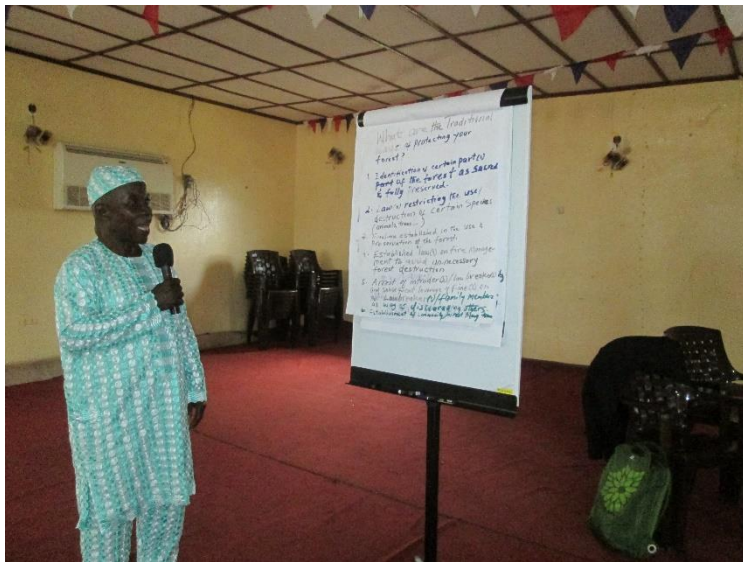 What are the Traditional
ways of protecting your
forest?
1. Identification of certain part(s)
part of the forest as sacred
& fully reserved.
2. Law(s) restricting the use/
destruction of certain species
(animals, trees...)
established in the use &
Preservation of the forest.
Established law(s) on fire manage-
ment to avoid un-necessary
forest destruction
5. Arrest of intruder(s)/law breaker(s) by
and subsequent
(s)/family members
as way of discouraging others
Establishment of community forest